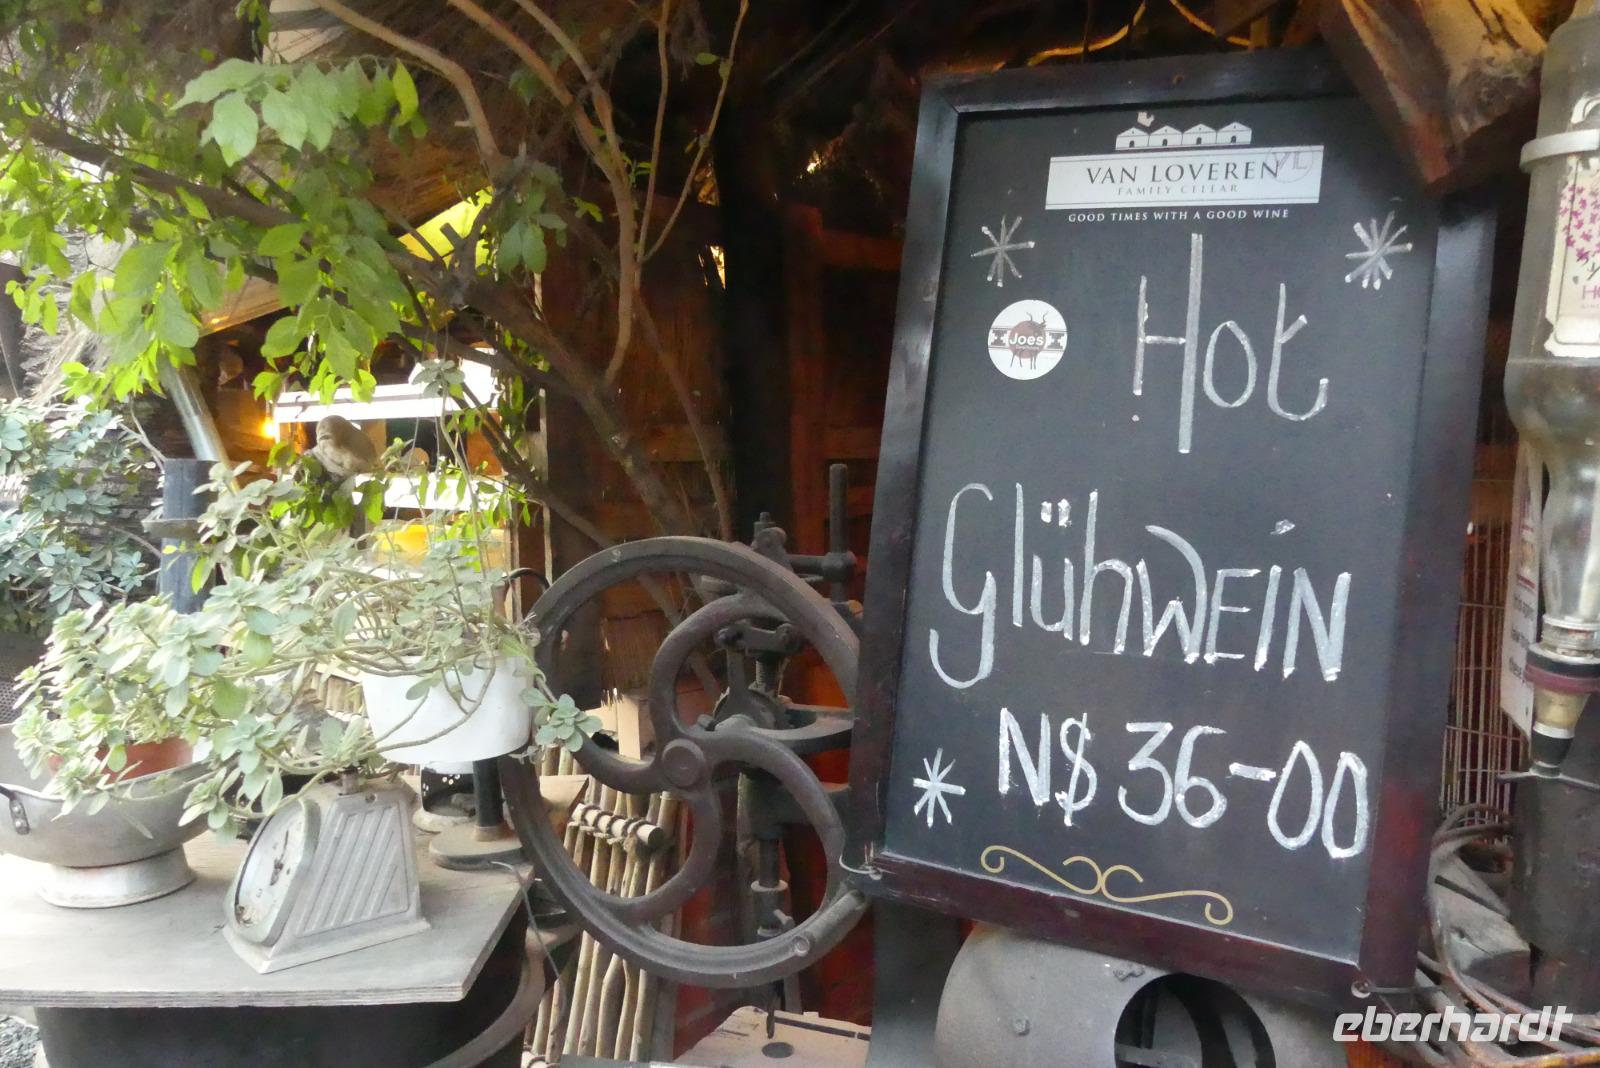 VAN LOVEREN
FAMILY CELLAR
GOOD TIMES WITH A GOOD WINE
Joes
Hot
GlühWEIN
N$ 36-00
eberhardt